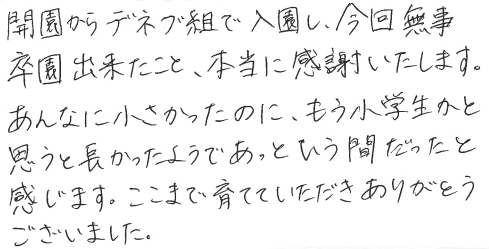 開園からデネブ組で入園し、今回無事
卒園出来たこと、本当に感謝いたします。
あんなに小さかったのに、もう小学生かと
思うと長かったようであっという間だったと
感じます。ここまで育てていただきありがとう
ございました。